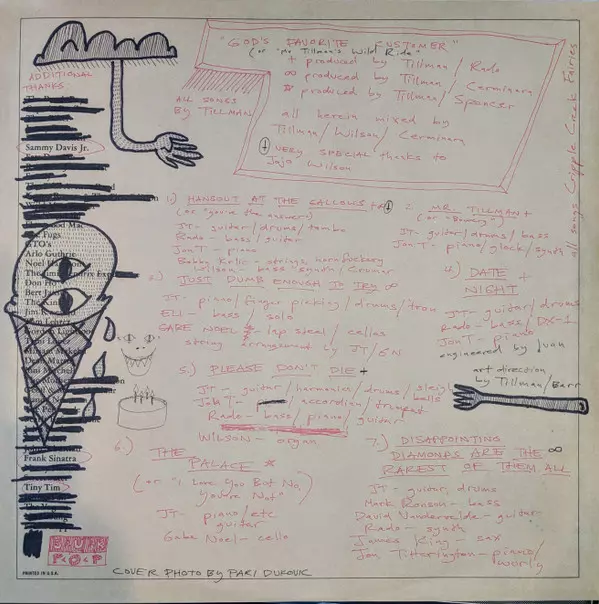 "GOD'S FAVORITE CUSTOMER"
(or "Mr. Tillman's Wild Ride"
+ produced by Tillman/Rado
∞ produced by Tillman/Cerminara
* produced by Tillman/Spencer
all herein mixed by
Tillman/Wilson/Cerminara
VERY SPECIAL thanks to
Jojo Wilson
ALL SONGS
BY TILLMAN
all songs Cripple Creek Fairies
ADDITIONAL
THANKS
Sammy Davis Jr.
Fugs
Arlo Guthrie
Noel H
Don Ho
Bert Jan
The Kin
Jim K
Frank Sinatra
Tiny Tim
1.) HANGOUT AT THE GALLOWS +
(or "you're the answer")
JT- guitar/drums/tambo
Rado- bass/guitar
Jon T- piano
Bobby Krlic- strings, horn fuckery
Wilson- bass synth/
2. MR. TILLMAN +
(or "Bluesy")
JT- guitar/drums/bass
Jon T- piano/glock/synth
JUST DUMB ENOUGH TO TRY ∞
JT- piano/finger picking/drums/
ELI- bass/solo
GABE NOEL- lap steel/cellos
string arrangement by JT/GN
4.) DATE +
NIGHT
JT- guitar/drums
Rado- bass/DX-1
Jon T- piano
engineered by Juan
art direction
by Tillman/Barr
5.) PLEASE DON'T DIE +
JT- guitar/harmonica/drums/sleigh
bells
Jon T- /accordian/trumpet
Rado- bass/piano/guitar
WILSON- organ
6.) THE
PALACE *
(or "I Love You But No,
You're Not"
JT- piano/etc
guitar
Gabe Noel- cello
7.) DISAPPOINTING
DIAMONDS ARE THE ∞
RAREST OF THEM ALL
JT- guitar, drums
Mark Ronson- bass
David Vandervelde- guitar
Rado- synth
James King- sax
Jon Titterington- piano/
wurly
POP
PRINTED IN U.S.A.
COVER PHOTO BY PARI DUKOVIC